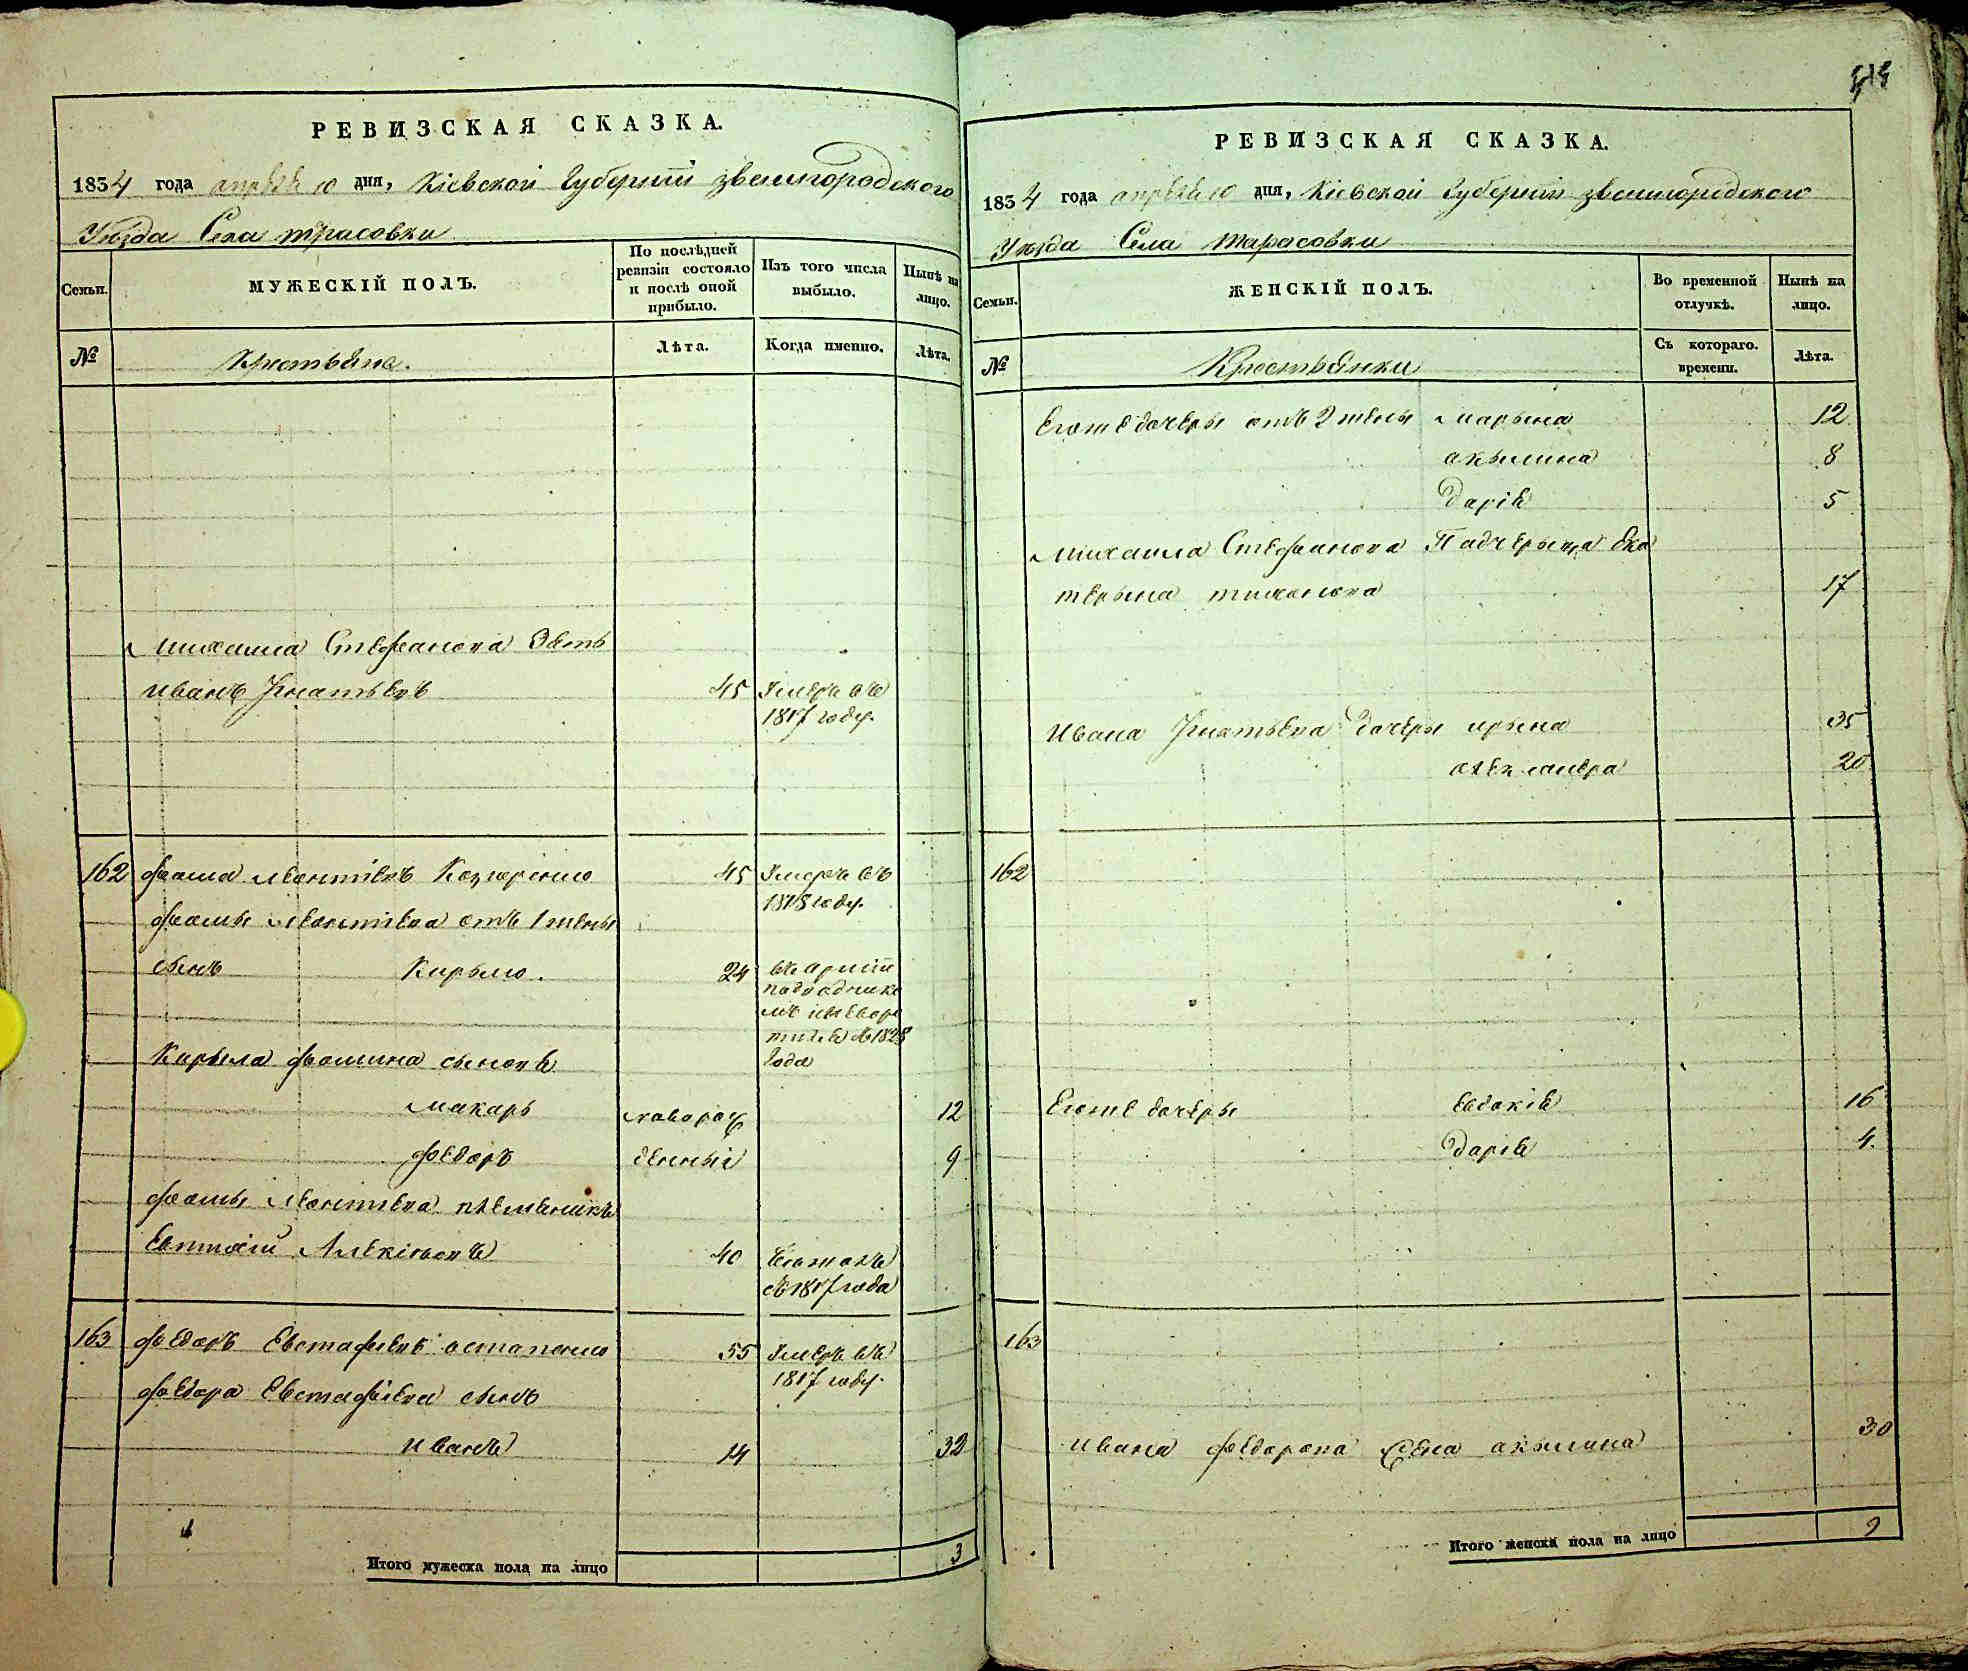 РЕВИЗСКАЯ СКАЗКА.
1834 года апреля 10 дня, Кіевской Губерніи звенигородского
Уѣзда Села тарасовки
Семьи.
МУЖЕСКІЙ ПОЛЪ.
По послѣдней
ревизіи состояло
и послѣ оной
прибыло.
Изъ того числа
выбыло.
Нынѣ на
лицо.
№
Крестьяне.
Лѣта.
Когда именно.
Лѣта.
Михаила Стефанова Зять
иванъ Игнатьевъ 45 Умеръ въ
1817 году.
162 фома леонтіевъ 45 Умеръ въ
1818 году.
фомы леонтіева отъ 1 жены
сынъ Кирыло. 24
1828
года
Кирыла фомина сыновя
макаръ новорож 12
федоръ денныи 9
фомы леонтіева племенникъ
Евтихій Алексіевъ 40
съ 1817 года
163 федоръ Евстафіевъ остапенко 55 Умеръ въ
1817 году.
федора Евстафіева сынъ
иванъ 14 32
Итого мужеска пола на лицо 3
РЕВИЗСКАЯ СКАЗКА.
1834 года апреля 10 дня, Кіевской Губерніи звенигородского
Уѣзда Села тарасовки
Семьи.
ЖЕНСКІЙ ПОЛЪ.
Во временной
отлучкѣ.
Нынѣ на
лицо.
№
Крестьянки
Съ котораго.
времени.
Лѣта.
Егоже дочеры отъ 2 жены марына 12
акылина 8
Дарія 5
михаила Стефанова Падчерыца Ека
терына тихонова 17
Ивана Игнатьева дочеры ирына 35
20
162
Егоже дочеры евдокія 16
Дарія 4.
163
ивана федорова жена акылина 30
Итого женска пола на лицо 9